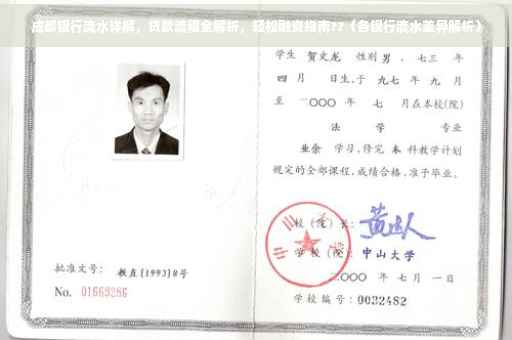 成都银行流水详解，贷款流程全解析，轻松融资指南??（各银行流水差异解析）
学生 贺文龙 性别 男 、七三 年
四 月 日生,于 九七 年 九 月
至 二〇〇〇 年 七 月在本校(院)
法 学 专业
业余 学习,修完 本 科教学计划
规定的全部课程,成绩合格,准予毕业。
校（院）长:
学 校（院）: 中山大学
二〇〇〇 年 七 月 一 日
学校编号: 0032482
批准文号: 教直[1993]8号
No. 01669286